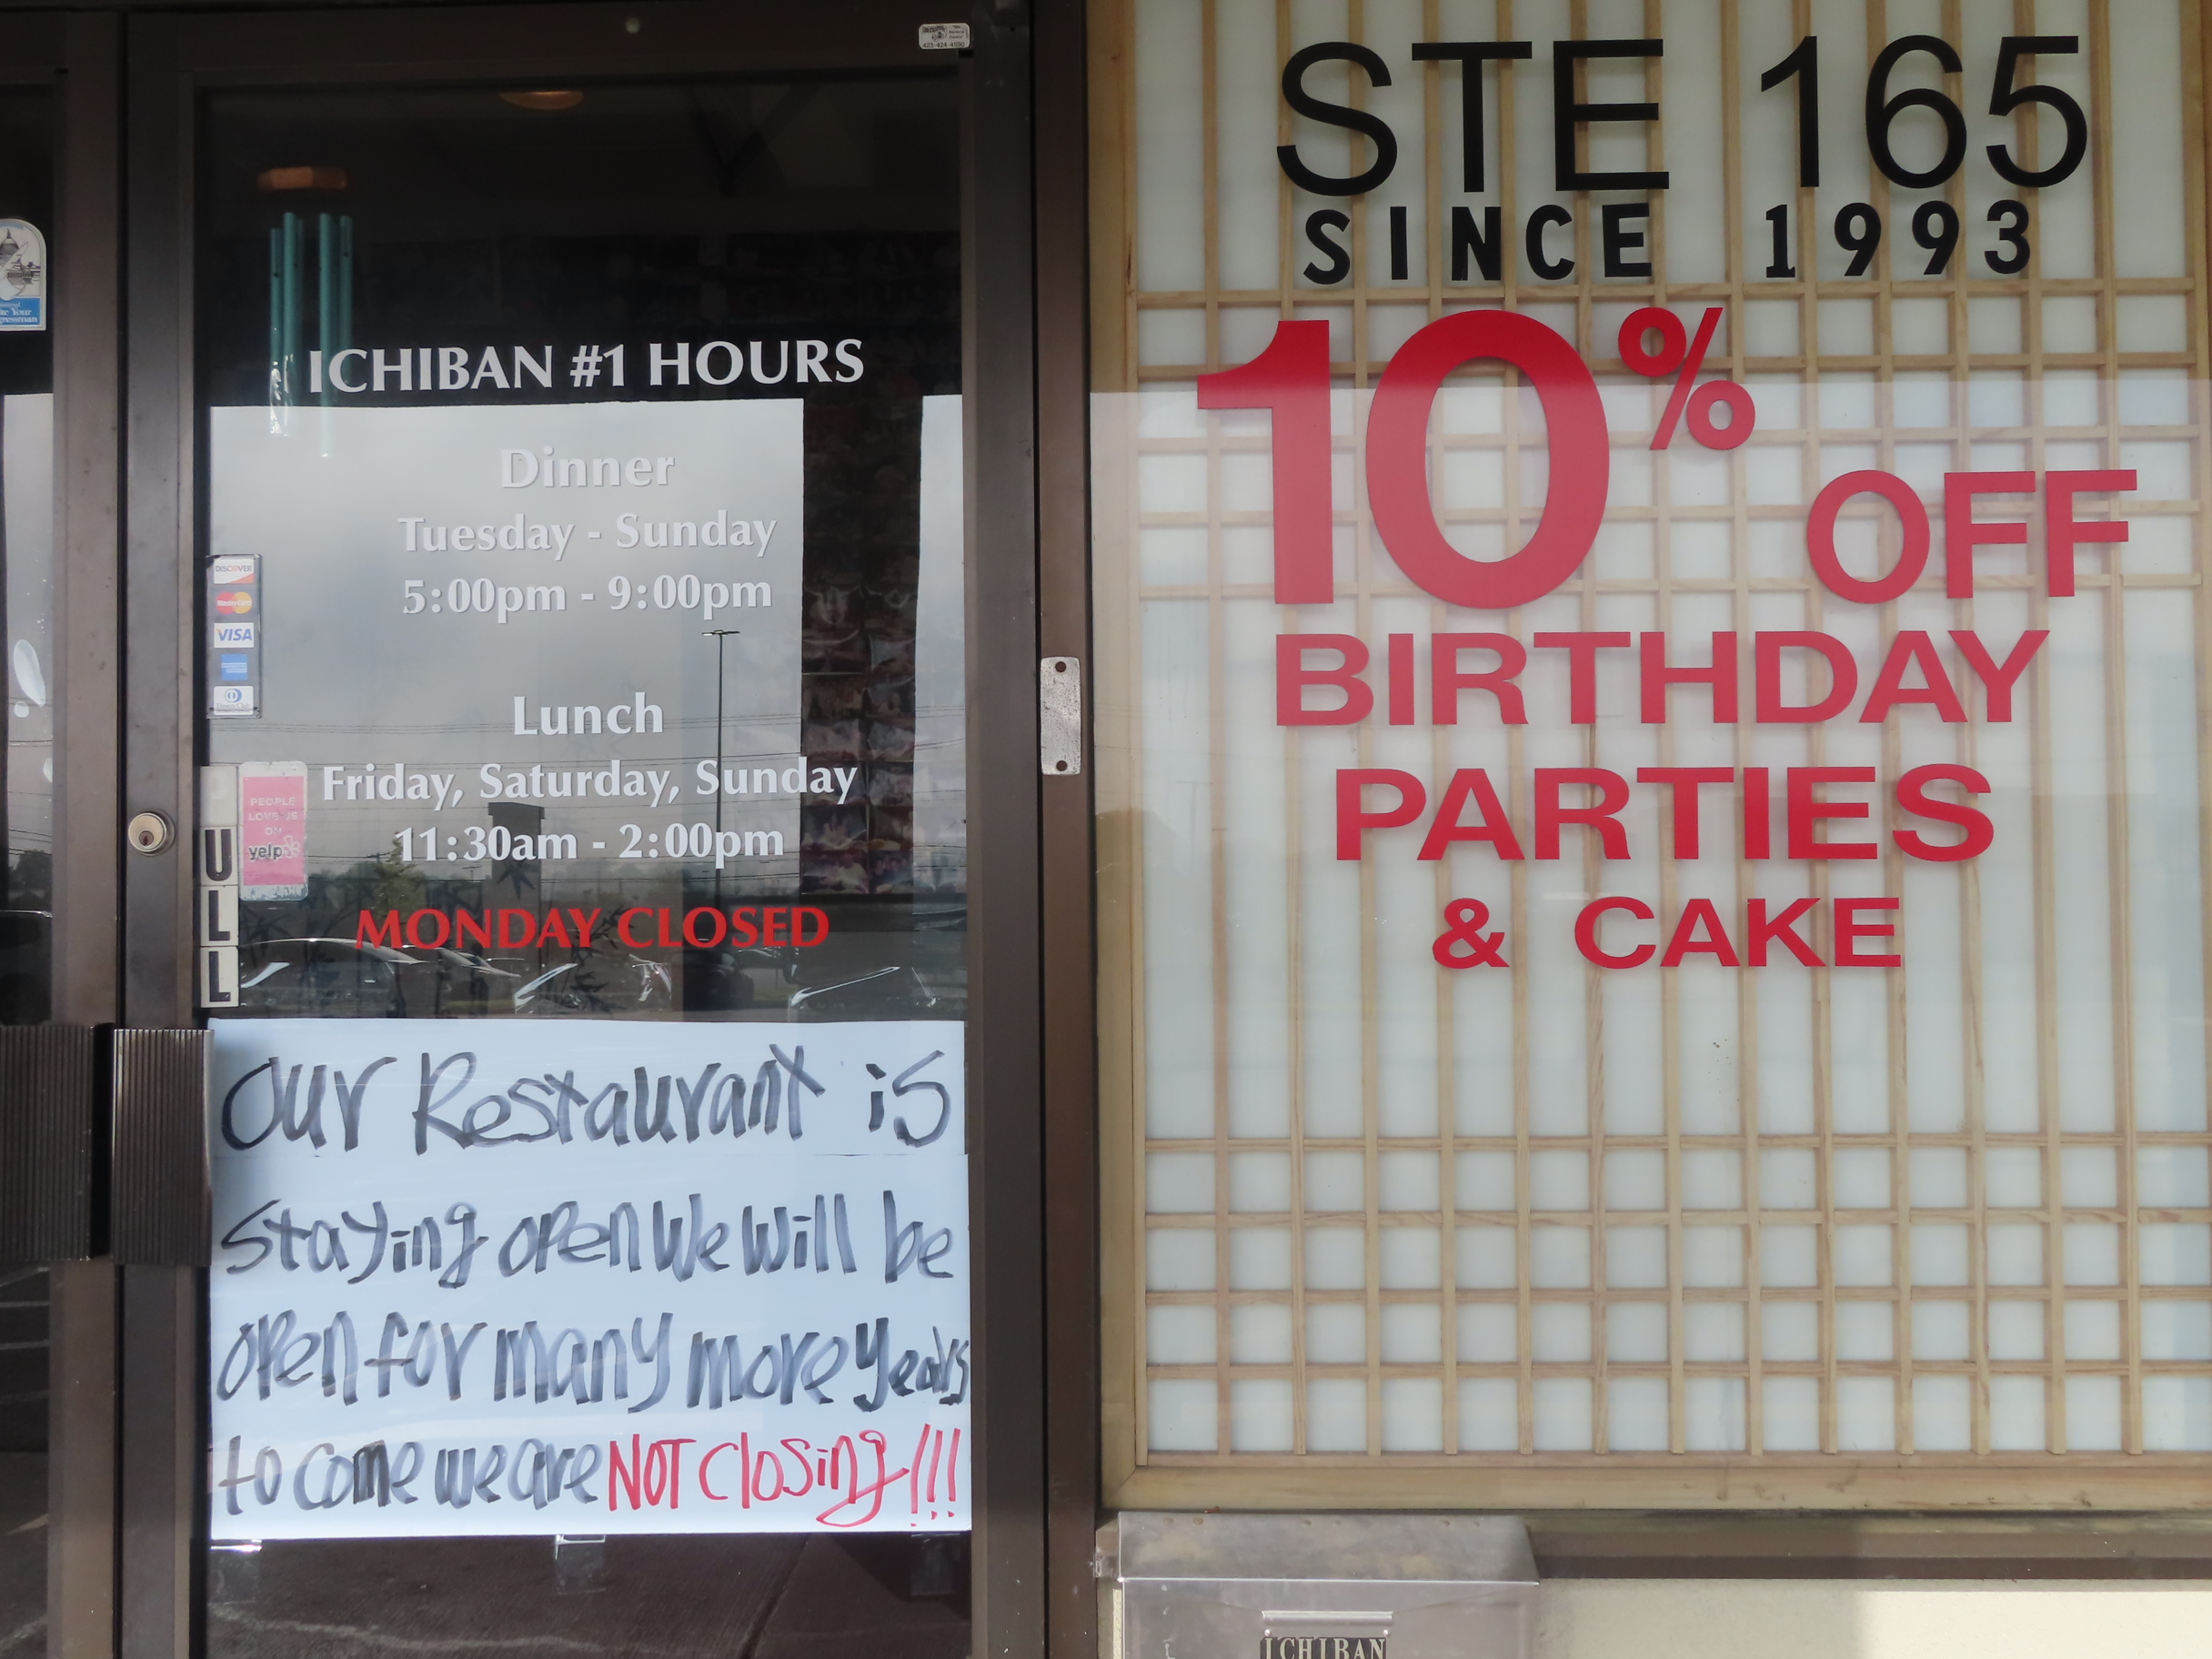 ICHIBAN #1 HOURS
Dinner
Tuesday - Sunday
5:00pm - 9:00pm
Lunch
Friday, Saturday, Sunday
11:30am - 2:00pm
MONDAY CLOSED
DISCOVER
MasterCard
VISA
PEOPLE
LOVE US
ON
yelp
U
L
L
Our Restaurant is
staying open we will be
open for many more years
to come we are NOT closing!!!
STE 165
SINCE 1993
10% OFF
BIRTHDAY
PARTIES
& CAKE
ICHIBAN